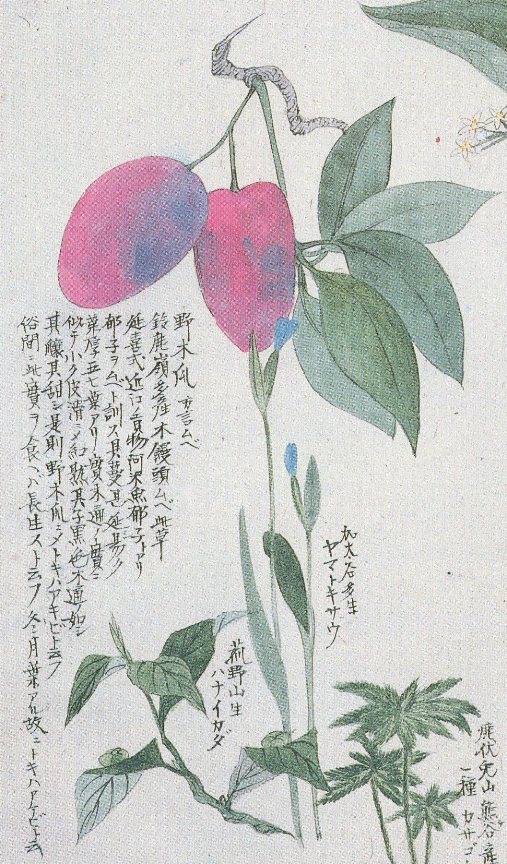 野木瓜 方言ムベ
鈴鹿嶺多産 木饅頭ムベ 此草
延喜式 近江ノ貢物 河 郁子トアリ
郁子ヲムベト訓ス 其蔓甚延易ク
葉厚 五七葉アリ 實木通ノ實ニ
似テ小ク皮滑ニメ紅 其子黒色 木通ノ如シ
其瓤甜シ 是則野木瓜ニメトキハアケビト云フ
俗間ニ此實ヲ食ヘハ長生スト云フ 冬月葉アル故ニトキハアケビト云
大谷多生
ヤマトキサウ
菰野山生
ハナイカダ
山 熊谷産
一種 カサゴ